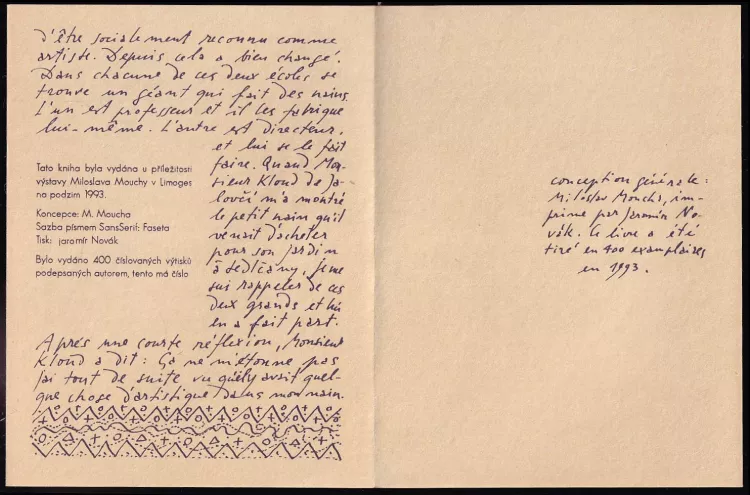 d'être socialement reconnu comme
artiste. Depuis cela a bien changé.
Dans chacune de ces deux écoles se
trouve un géant qui fait des nains.
L'un est professeur et il les fabrique
lui-même. L'autre est directeur,
et lui se le fait
faire. Quand Mon-
sieur Kloud de Ja-
lovčí m'a montré
le petit nain qu'il
venait d'acheter
pour son jardin
à Sedlčany, je me
suis rappeler de ces
deux grands et lui
en a fait part.
Après une courte réflexion, Monsieur
Kloud a dit: Ça ne m'étonne pas
j'ai tout de suite vu qu'ily avait quel-
que chose d'artistique dans mon nain.
Tato kniha byla vydána u příležitosti
výstavy Miloslava Mouchy v Limoges
na podzim 1993.
Koncepce: M. Moucha
Sazba písmem SansSerif: Faseta
Tisk: jaromír Novák
Bylo vydáno 400 číslovaných výtisků
podepsaných autorem, tento má číslo
conception générale:
Miloslav Moucha, im-
primé par Jaromír No-
vák. Ce livre a été
tiré en 400 exemplaires
en 1993.